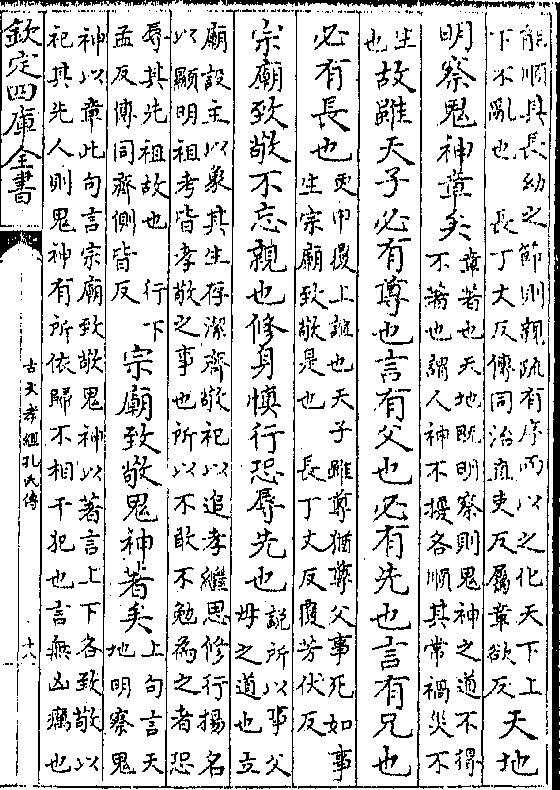 能順其長幼之節則親疏有序而以之化天下上
下不亂也　長丁丈反傳同治直吏反屬章欲反
天地
明察鬼神章矣
章著也天地既明察則鬼神之道不得
不著也謂人神不擾各順其常禍災不
生
也
故雖天子必有尊也言有父也必有先也言有兄也
必有長也
更申覆上誼也天子雖尊猶尊父事死如事
生宗廟致敬是也　長丁丈反覆芳伏反
宗廟致敬不忘親也修身慎行恐辱先也
說所以事父
母之道也立
廟設主以象其生存潔齊敬祀以追孝繼思修行揚名
以顯明祖考皆孝敬之事也所以不敢不勉為之者恐
辱其先祖故也　行下
孟反傳同齊側皆反
宗廟致敬鬼神著矣
上句言天
地明察鬼
神以章此句言宗廟致敬鬼神以著言上下各致敬以
祀其先人則鬼神有所依歸不相干犯也言無凶癘也
欽定四庫全書
古文孝經孔氏傳
十八